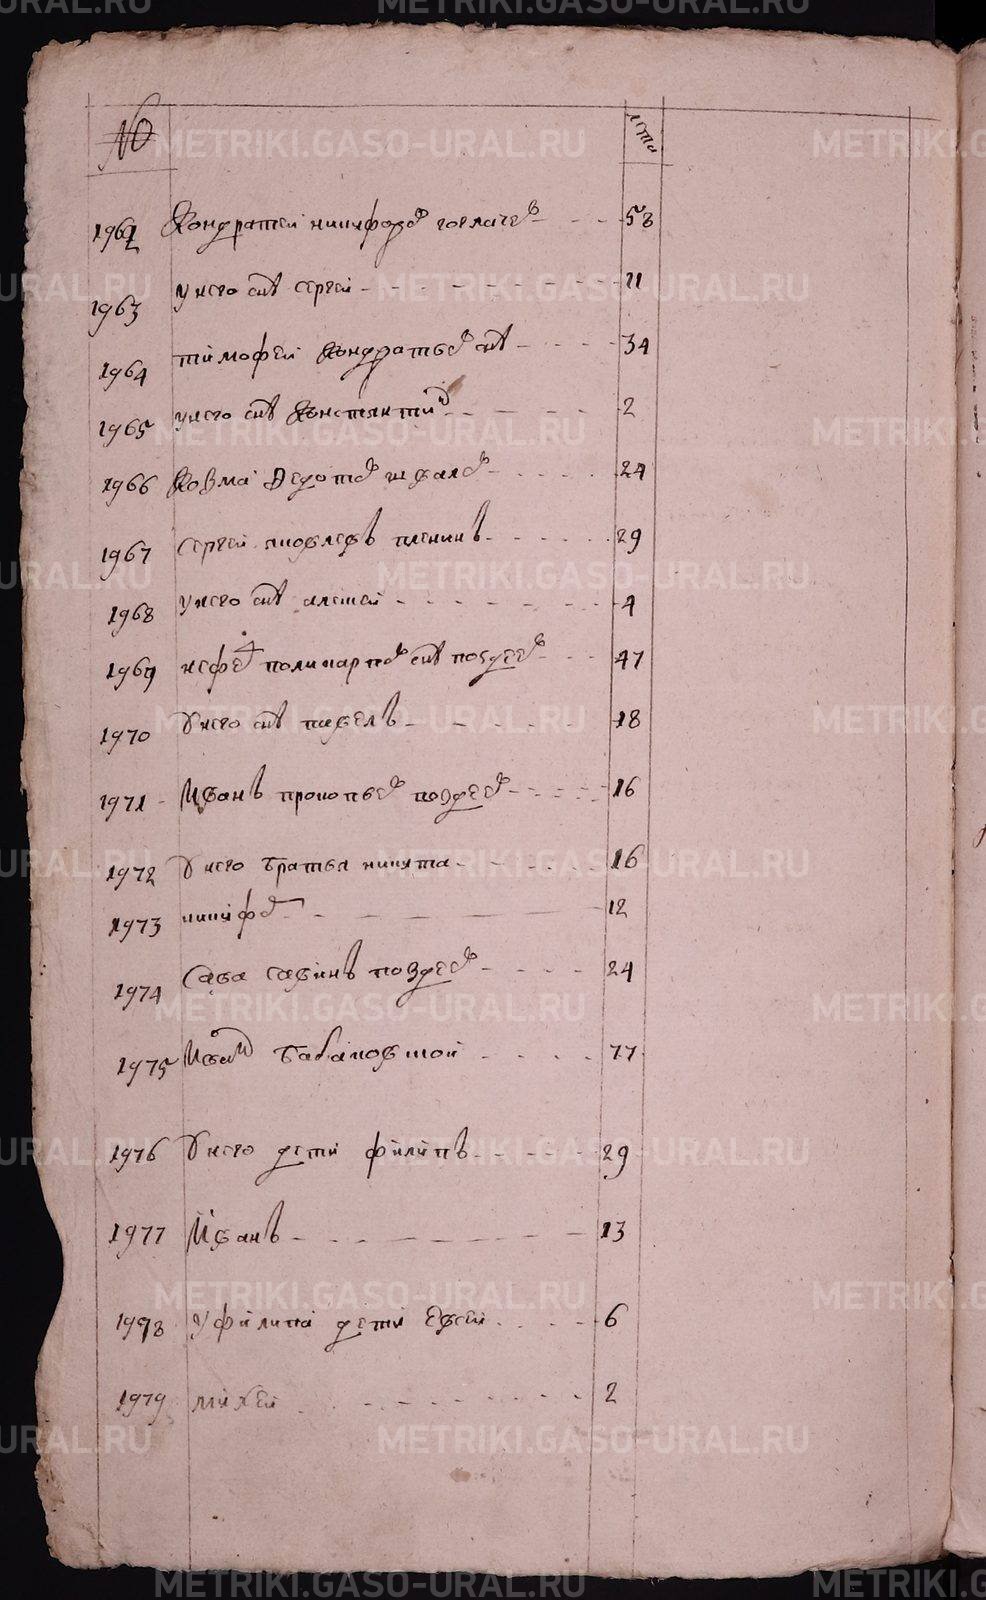 № лета
1962 Кондратей никифоров 58
1963 у него снъ сергей 11
1964 тимофей Кондратьев снъ 34
1965 у него снъ Констянтин 2
1966 Козма Федотов 24
1967 сергей яковлевъ пленинъ 29
1968 у него снъ алексей 4
1969 нефед поликарпов снъ поздеев 47
1970 У него снъ павелъ 18
1971 Иванъ прокопьев поздеев 16
1972 У него братья никита 16
1973 никифор 12
1974 Сава савинъ поздеев 24
1975 Иван 77
1976 У него дети филипъ 29
1977 Иванъ 13
1978 У филипа дети Евсей 6
1979 михей 2
METRIKI.GASO-URAL.RU